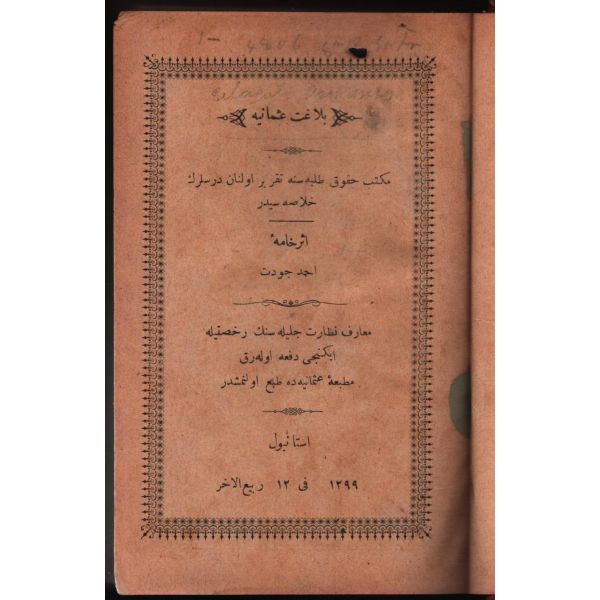 بلاغت عثمانیه
مکتب حقوق طلبه سنه تقریر اولنان درسلرك
خلاصه سیدر
اثر خامهٔ
احمد جودت
معارف نظارت جلیله سنك رخصتیله
ایکنجی دفعه اوله رق
مطبعهٔ عثمانیه ده طبع اولنمشدر
استانبول
١٢٩٩ فی ١٢ ربیع الآخر